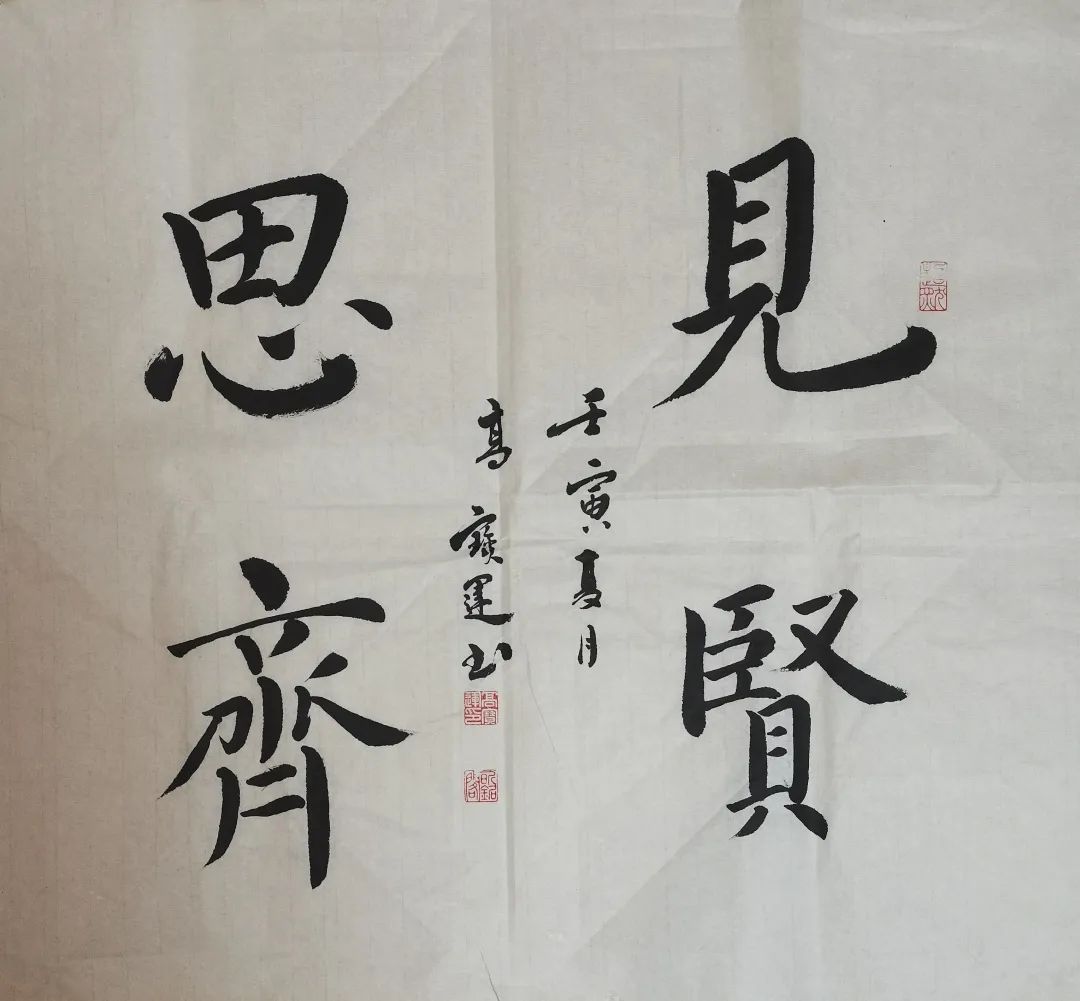 見賢
思齊
壬寅夏月
高寶運书